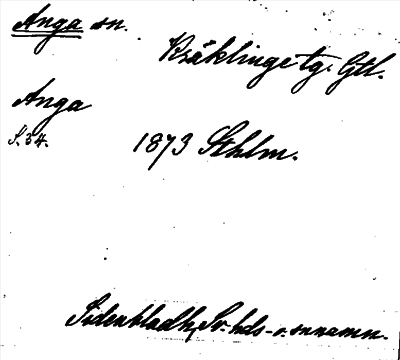 Anga sn.
Kräklinge tg. Gtl.
Anga
S. 34.
1873 Sthlm.
Södenbladh, Sv. hds- o. snnamn.